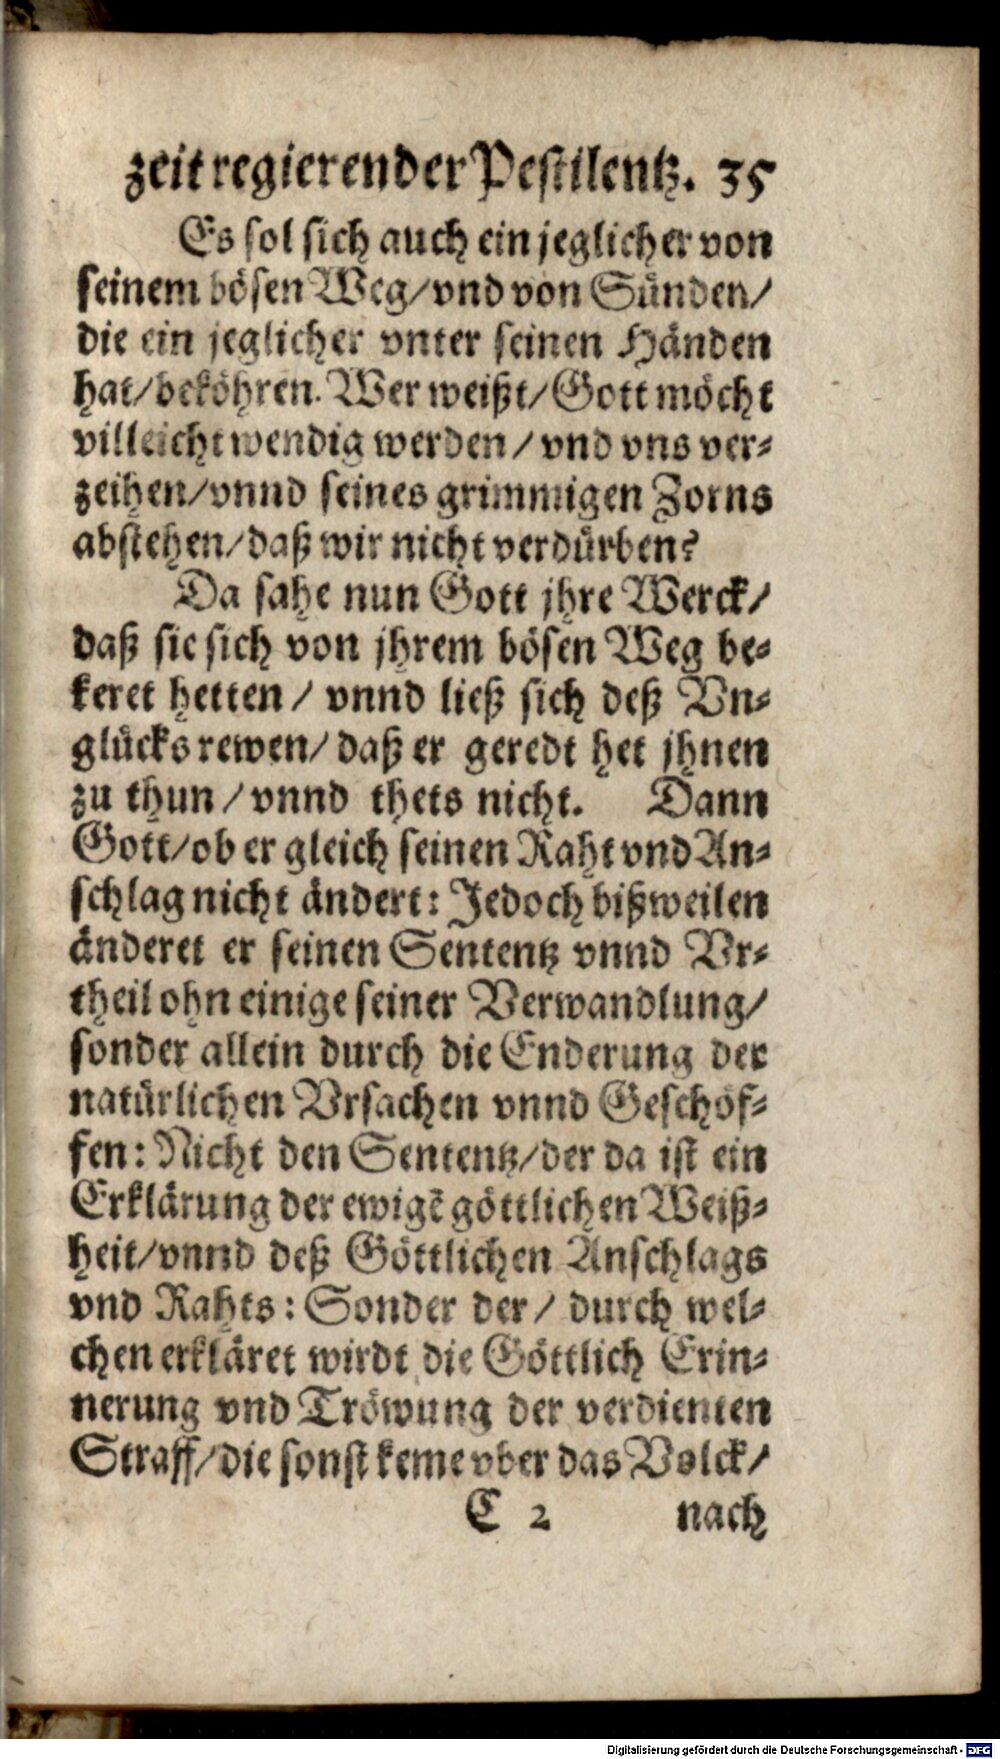 zeit regierender Pestilentz. 35
Es sol sich auch ein jeglicher von
seinem bösen Weg/vnd von Sünden/
die ein jeglicher vnter seinen Händen
hat/beköhren. Wer weißt/Gott möcht
villeicht wendig werden/vnd vns ver-
zeihen/vnnd seines grimmigen Zorns
abstehen/daß wir nicht verdürben?
Da sahe nun Gott jhre Werck/
daß sie sich von jhrem bösen Weg be-
keret hetten/vnnd ließ sich deß Vn-
glücks rewen/daß er geredt het jhnen
zu thun/vnnd thets nicht. Dann
Gott/ob er gleich seinen Raht vnd An-
schlag nicht ändert: Jedoch bißweilen
änderet er seinen Sententz vnnd Vr-
theil ohn einige seiner Verwandlung/
sonder allein durch die Enderung der
natürlichen Vrsachen vnnd Geschöf-
fen: Nicht den Sententz/der da ist ein
Erklärung der ewigẽ göttlichen Weiß-
heit/vnnd deß Göttlichen Anschlags
vnd Rahts: Sonder der/durch wel-
chen erkläret wirdt die Göttlich Erin-
nerung vnd Tröwung der verdienten
Straff/die sonst keme vber das Volck/
C 2 nach
Digitalisierung gefördert durch die Deutsche Forschungsgemeinschaft - DFG